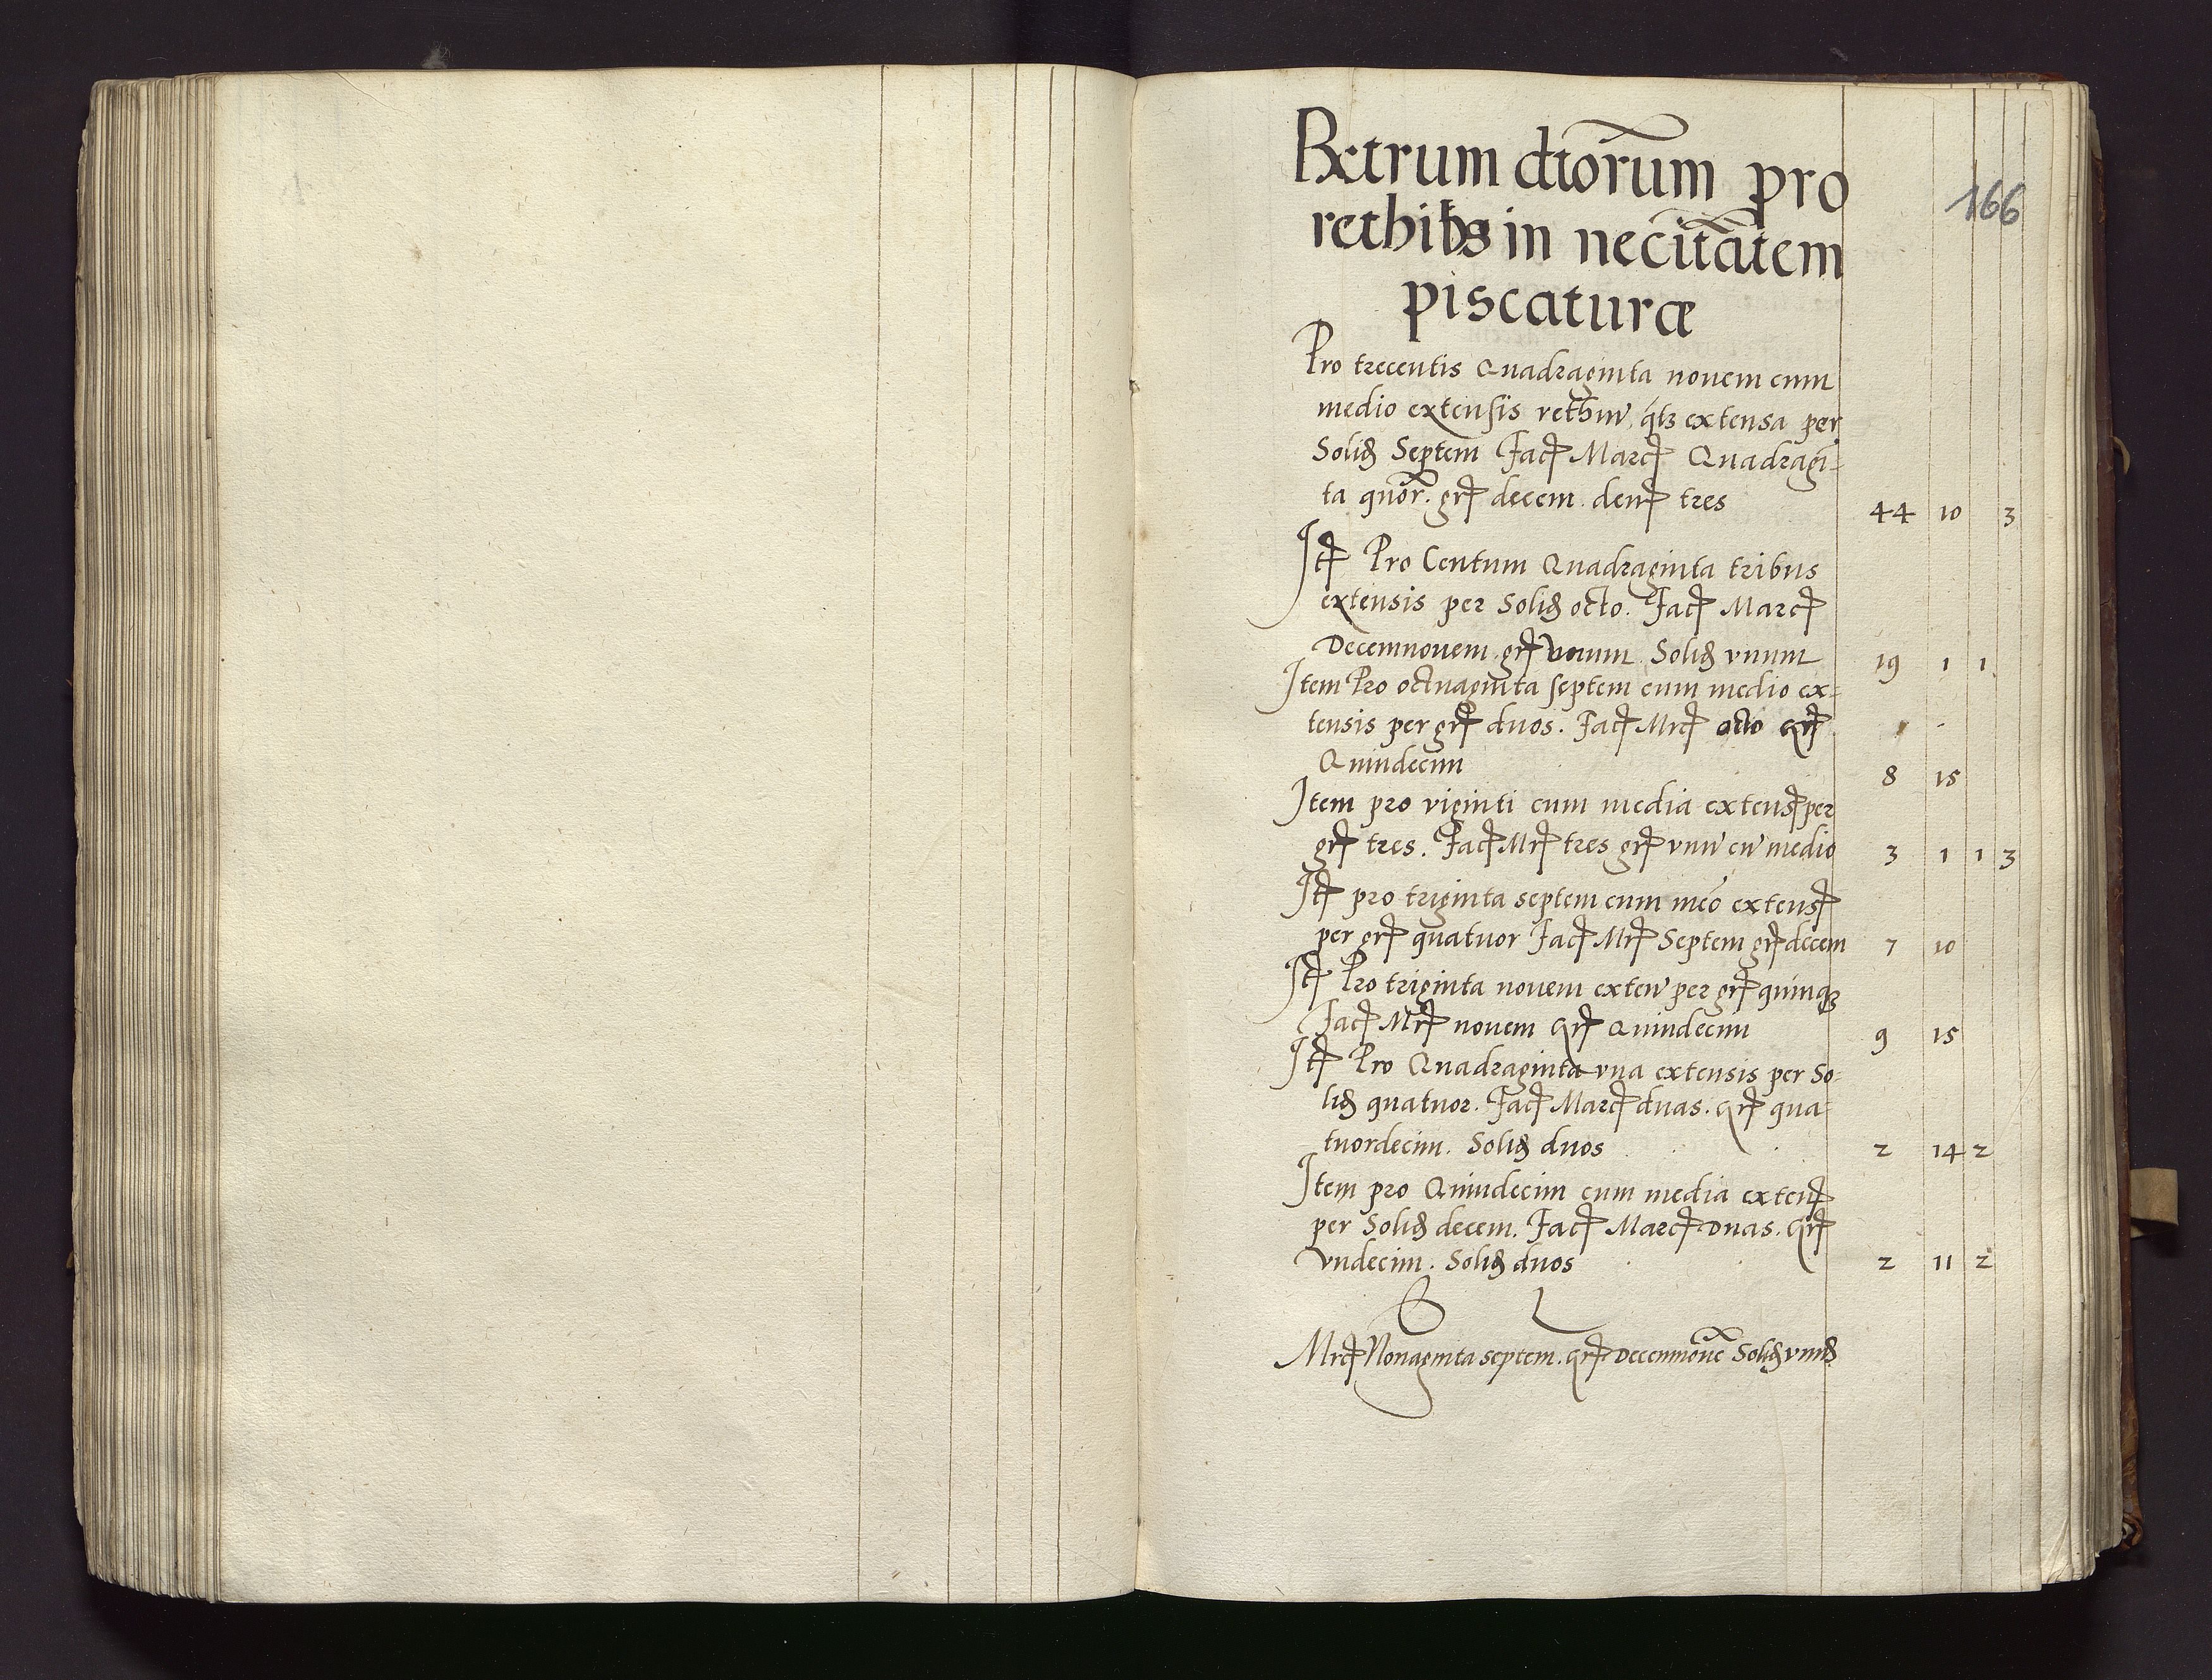 Rxtrum dtorum pro
166
rethibs in necitatem
piscaturæ
Pro trecentis Quadraginta nouem cum
medio extensis rethiu, qlz extensa per
Solid Septem Fac Marc Quadragī-
ta quor. gr decem. den tres 44 10 3
It Pro Centum Quadraginta tribus
extensis per Solid octo. Fac Marc
Decemnouem gr vnum Solid vnum 19 1 1
Item Pro octuaginta septem cum medio ex-
tensis per gr duos. Fac Mrc octo gr
Quindecim 8 15
Item pro viginti cum media extens per
gr tres. Fac Mr tres gr vnu cu medio 3 1 1 3
It pro triginta septem cum meo extens
per gr quatuor Fac Mr Septem gr decem 7 10
It Pro triginta nouem exten per gr quinqz
Fac Mr nouem gr Quindecim 9 15
It Pro Quadraginta vna extensis per So-
lid quatuor. Fac Marc duas. gr qua-
tuordecim. Solid duos 2 14 2
Item pro Quindecim cum media exten
per Solid decem. Fac Marc Duas. gr
vndecim. Solid duos 2 11 2
Mrc Nonaginta septem. gr Decemnoue Solid vnus